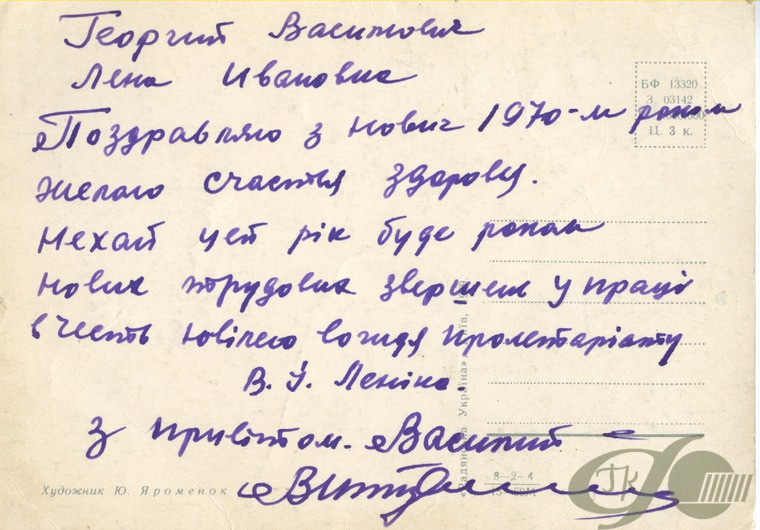 Георгий Васильович
Лена Ивановна
Поздравляю з новим 1970-м роком
желаю счастья здоровя.
Нехай цей рік буде роком
нових трудових звершень у праці
в честь ювілею вождя пролетаріату
В. І. Леніна.
З привітом. Василий
БФ 13320
З. 03142
Ц. 3 к.
«Радянська Україна»
Художник Ю. Яроменок
8—2—4
ГК